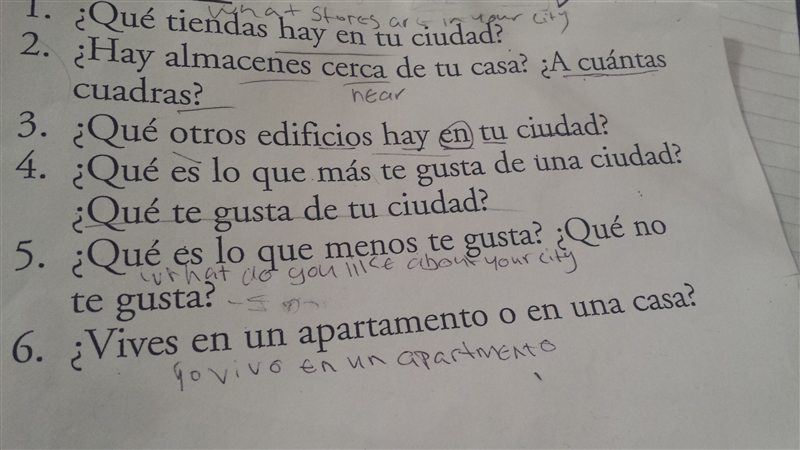 What stores are in your city
1. ¿Qué tiendas hay en tu ciudad?
2. ¿Hay almacenes cerca de tu casa? ¿A cuántas
cuadras?
near
3. ¿Qué otros edificios hay en tu ciudad?
4. ¿Qué es lo que más te gusta de una ciudad?
¿Qué te gusta de tu ciudad?
5. ¿Qué es lo que menos te gusta? ¿Qué no
what do you like about your city
te gusta?
6. ¿Vives en un apartamento o en una casa?
yo vivo en un apartmento